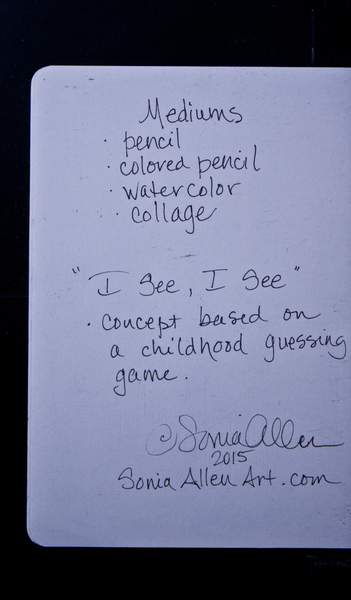 Mediums
· pencil
· colored pencil
· watercolor
· collage
"I See, I See"
· concept based on
a childhood guessing
game.
© Sonia Allen
2015
Sonia Allen Art.com